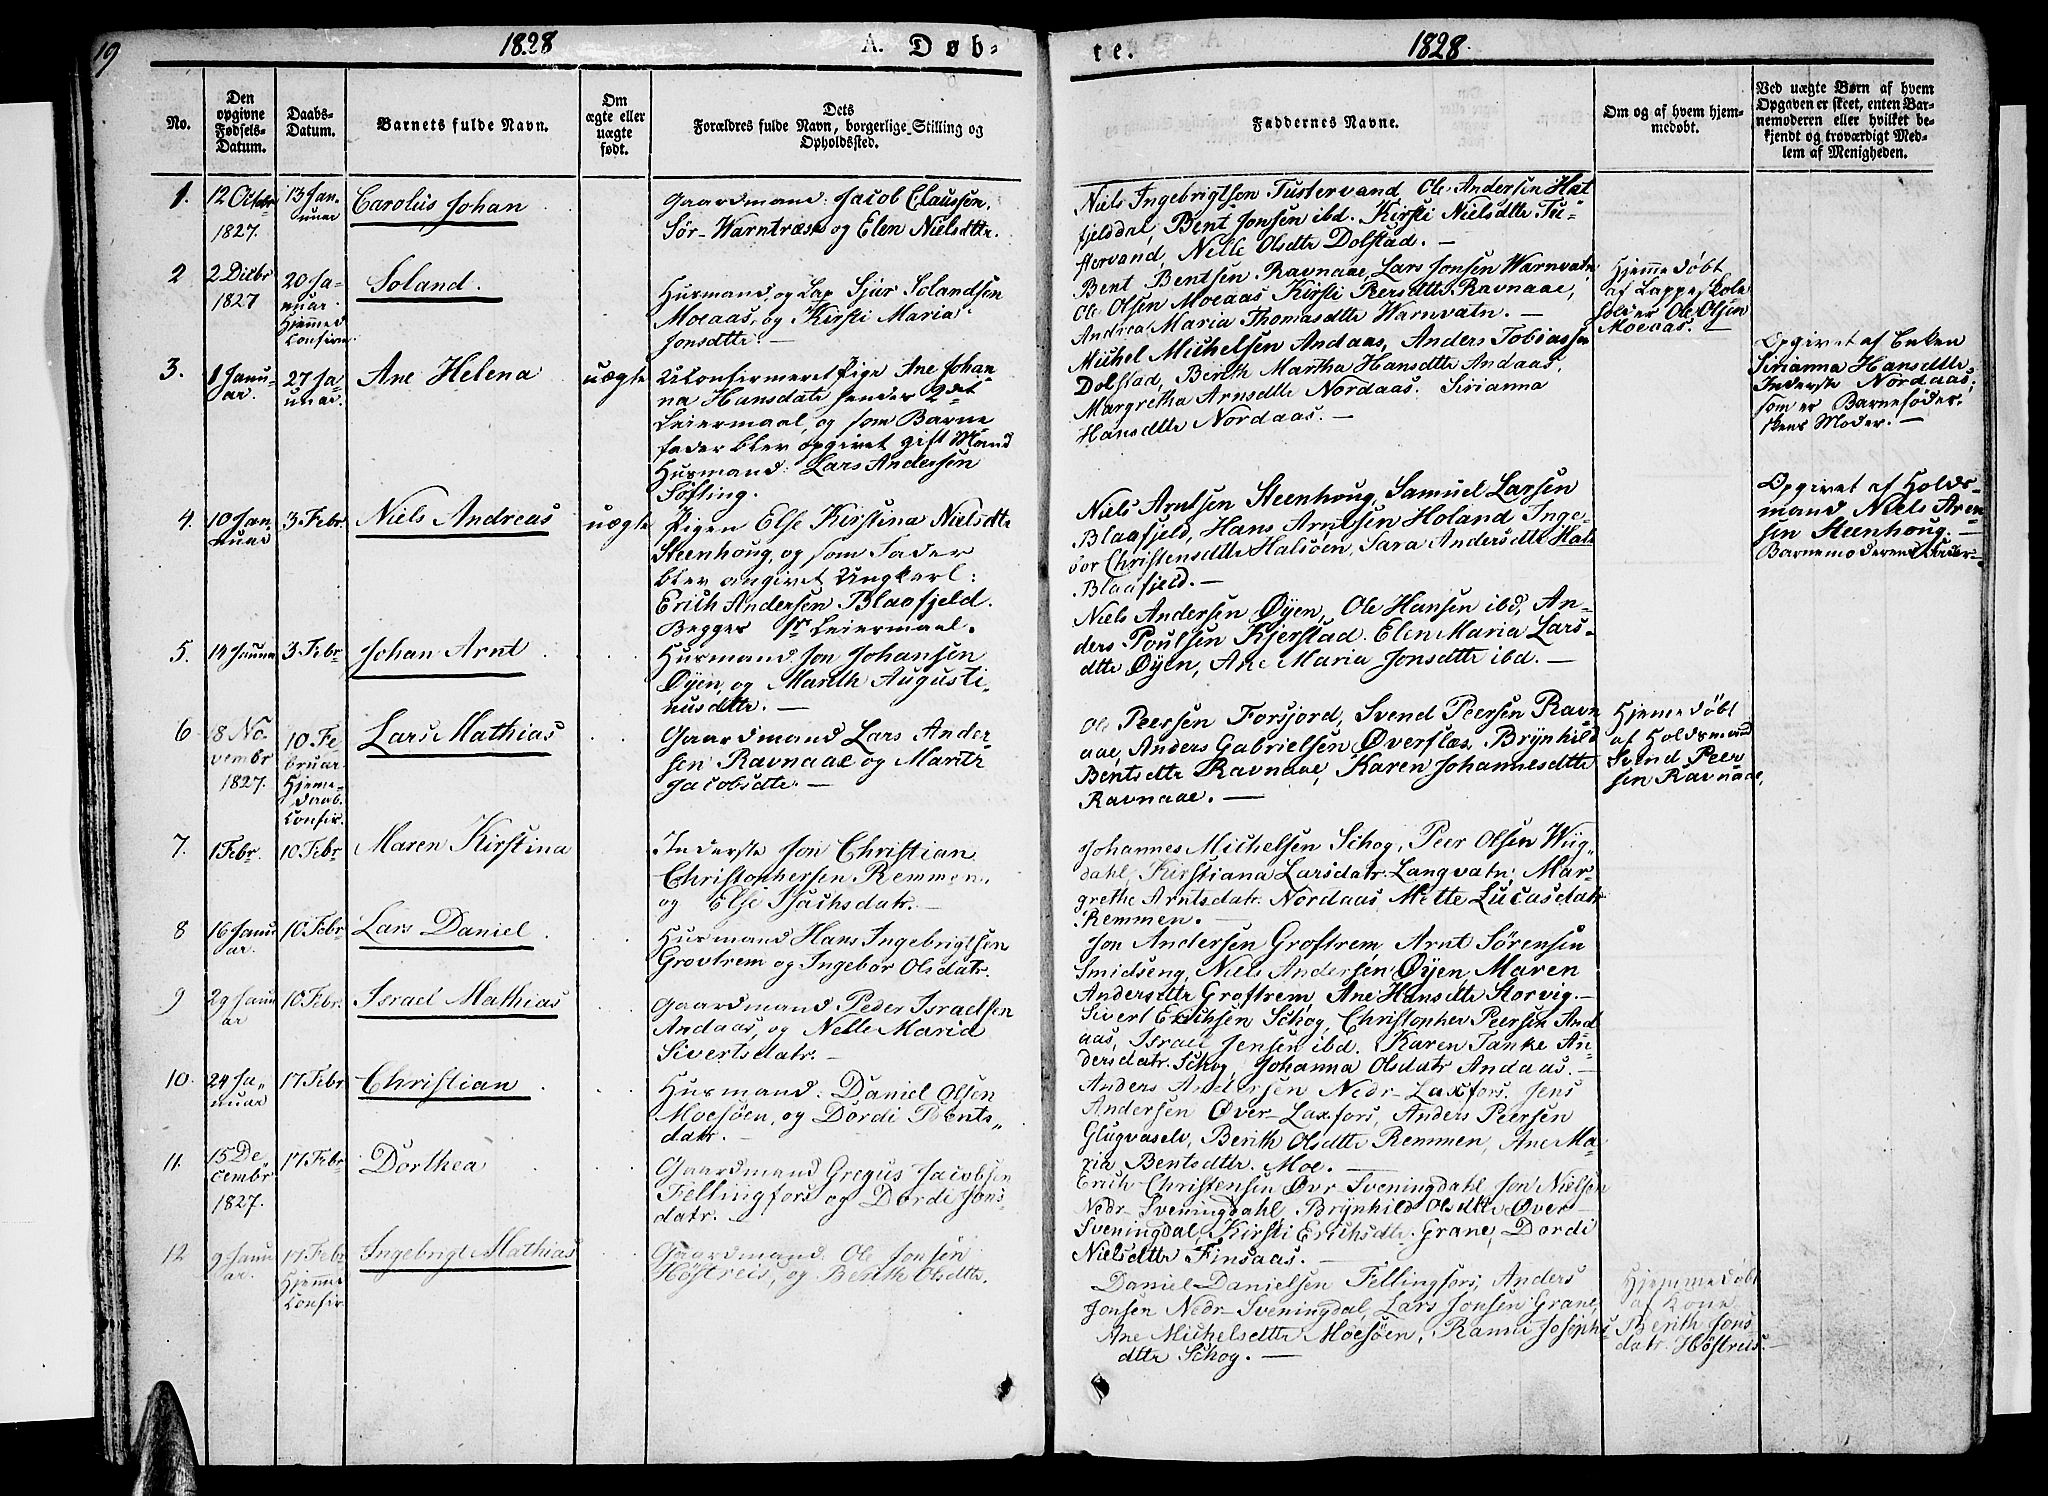 19
1828
A. Døb-
te.
1828.
No.
Den
opgivne
Fødsels-
Datum.
Daabs-
Datum.
Barnets fulde Navn.
Om
ægte eller
uægte
født.
Dets
Forældres fulde Navn, borgerlige Stilling og
Opholdssted.
Faddernes Navne.
Om og af hvem hjem-
medøbt.
Ved uægte Børn af hvem
Opgaven er skeet, enten Bar-
nemoderen eller hvilket be-
kjendt og troværdigt Med-
lem af Menigheden.
1.
12 Octbr
1827.
13 Jan-
uuar
Carolus Johan
Gaardmand: Jacob Claussen
Sør-Warntræsk og Elen Nielsdttr.
Niels Ingebrigtsen Tustervand, Ole Andersen Hat
fjelddal, Bent Jonsen ibd. Kirsti Nielsdttr Tu-
stervand, Nelle Olsdttr Dolstad. —
2
2 Decbr
1827
20 Ja-
nuar
Hjemmed
Confirm.
Soland.
Husmand og Lap Sjur Solandsen
Moeaas, og Kirsti Maria
Jonsdttr. —
Bent Bentsen Ravnaae, Lars Jonsen Warnvatn
Ole Olsen Moeaas Kirsti Peersdttr Ravnaae,
Andrea Maria Thomasdttr Warnvatn. —
Hjemmedøbt
af Lappeskole
holder Ole Olsen
Moeaas. —
3.
1 Janu-
ar.
27 Ja-
nuar.
Ane Helena
uægte
Uconfirmeret Pige Ane Johan-
na Hansdatr hendes 2det
Leiermaal, og som Barne
fader blev opgivet gift Mand
Husmand: Lars Andersen
Søfting.
Michel Michelsen Andaas, Anders Tobiassen
Dolstad, Berith Martha Hansdttr Andaas,
Margretha Arnsdttr Nordaas. Sirianna
Hansdttr Nordaas. —
Opgivet af Enken
Sirianna Hansdttr
Inderste Nordaas,
som er Barneføder-
skens Moder. —
4.
10 Jan-
nuar
3 Febr
Niels Andreas
uægte
Pigen Else Kirstina Nielsdttr
Steenhoug, og som Fader
blev angivet Ungkarl:
Erich Andersen Blaafjeld.
Begges 1ste Leiermaal.
Niels Arntsen Steenhoug, Samuel Larsen
Blaafjeld, Hans Arntsen Holand Inge-
bor Christensdttr Halsøen, Sara Andersdttr
Blaafjeld. —
Opgivet af Holds-
mand Niels Arn
sen Steenhoug. —
Barnemoderens Fader.
5.
14 Janua
3 Febr
Johan Arnt
Husmand Jon Johansen
Øyen, og Marith Augusti-
nusdttr. —
Niels Andersen Øyen, Ole Hansen ibd, An-
ders Poulsen Kjerstad. Elen Maria Lars-
dttr Øyen, Ane Maria Jonsdttr ibd. —
6
8 No
vembr
1827.
10 Fe-
bruar
Hjeme-
daab.
Confir.
Lars Mathias
Gaardmand Lars Ander-
sen Ravnaae og Marith
Jacobsdttr. —
Ole Peersen Forsjord, Svend Peersen Ravn
aae, Anders Gabrielsen Øverflæs, Brynhild
Bentsdttr Ravnaae, Karen Johannesdttr
Ravnaae. —
Hjemmedøbt
af Holdsmand
Svend Peer
sen Ravnaae.
7.
1 Febr.
10 Febr
Maren Kirstina
Inderste Jon Christian
Christophersen Remmen,
og Else Isachsdatr. —
Johannes Michelsen Schog, Peer Olsen Wiig-
dahl, Kirstiana Larsdatr. Langvatn, Mar-
grethe Arntsdatr. Nordaas Mette Lucasdatr
Remmen. —
8
16 Janu
ar.
10. Febr
Lars Daniel
Husmand Hans Ingebrigtsen
Grovtrem og Ingebor Olsdatr.
Jon Andersen Groftrem, Arnt Sørensen
Smidseng, Niels Andersen Øyen, Maren
Andersdttr Groftrem, Ane Hansdttr Storvig. —
9
29 Janu
ar
10. Febr.
Israel Mathias
Gaardmand Peder Israelsen
Andaas, og Nelle Maria
Sivertsdatr. —
Sivert Erichsen Schog, Christopher Peersen And
aas, Israel Jensen ibd. Karen Tanke An-
dersdatr. Schog, Johanna Olsdatr Andaas. —
10.
24 Ja-
nuar
17 Febr
Christian
Husmand: Daniel Olsen
Moesøen, og Dordi Bents-
datr. —
Anders Andersen Nedr-Laxfors, Jens
Andersen Øver-Laxfors, Anders Peersen
Glugvaselv, Berith Olsdttr Remmen, Ane Ma-
ria Bentsdttr. Moe. —
11.
15 De
cembr
1827.
17. Febr
Dorthea
Gaardmand Gregus Jacobsen
Fellingfors og Dordi Jons-
datr. —
Erich Christensen Øvr-Sveningdahl, Jon Nielsen
Nedr-Sveningdahl Brynhild Olsdttr Øver-
Sveningdal, Kirsti Erichsdttr. Grane, Dordi
Nielsdttr Finsaas. —
12
9 Janu
ar.
17. Febr
Hjemme
Confir
Ingebrigt Mathias
Gaardmand: Ole Jonsen
Høstreis, og Berith Olsdttr.
Daniel Danielsen Fellingfors, Anders
Jonsen Nedr-Sveningdal, Lars Jonsen Grane,
Ane Michelsdttr Moesøen, Josephs
dttr Schog. —
Hjemmedøbt
af Kone
Berith Jons
datr. Høstreis. —